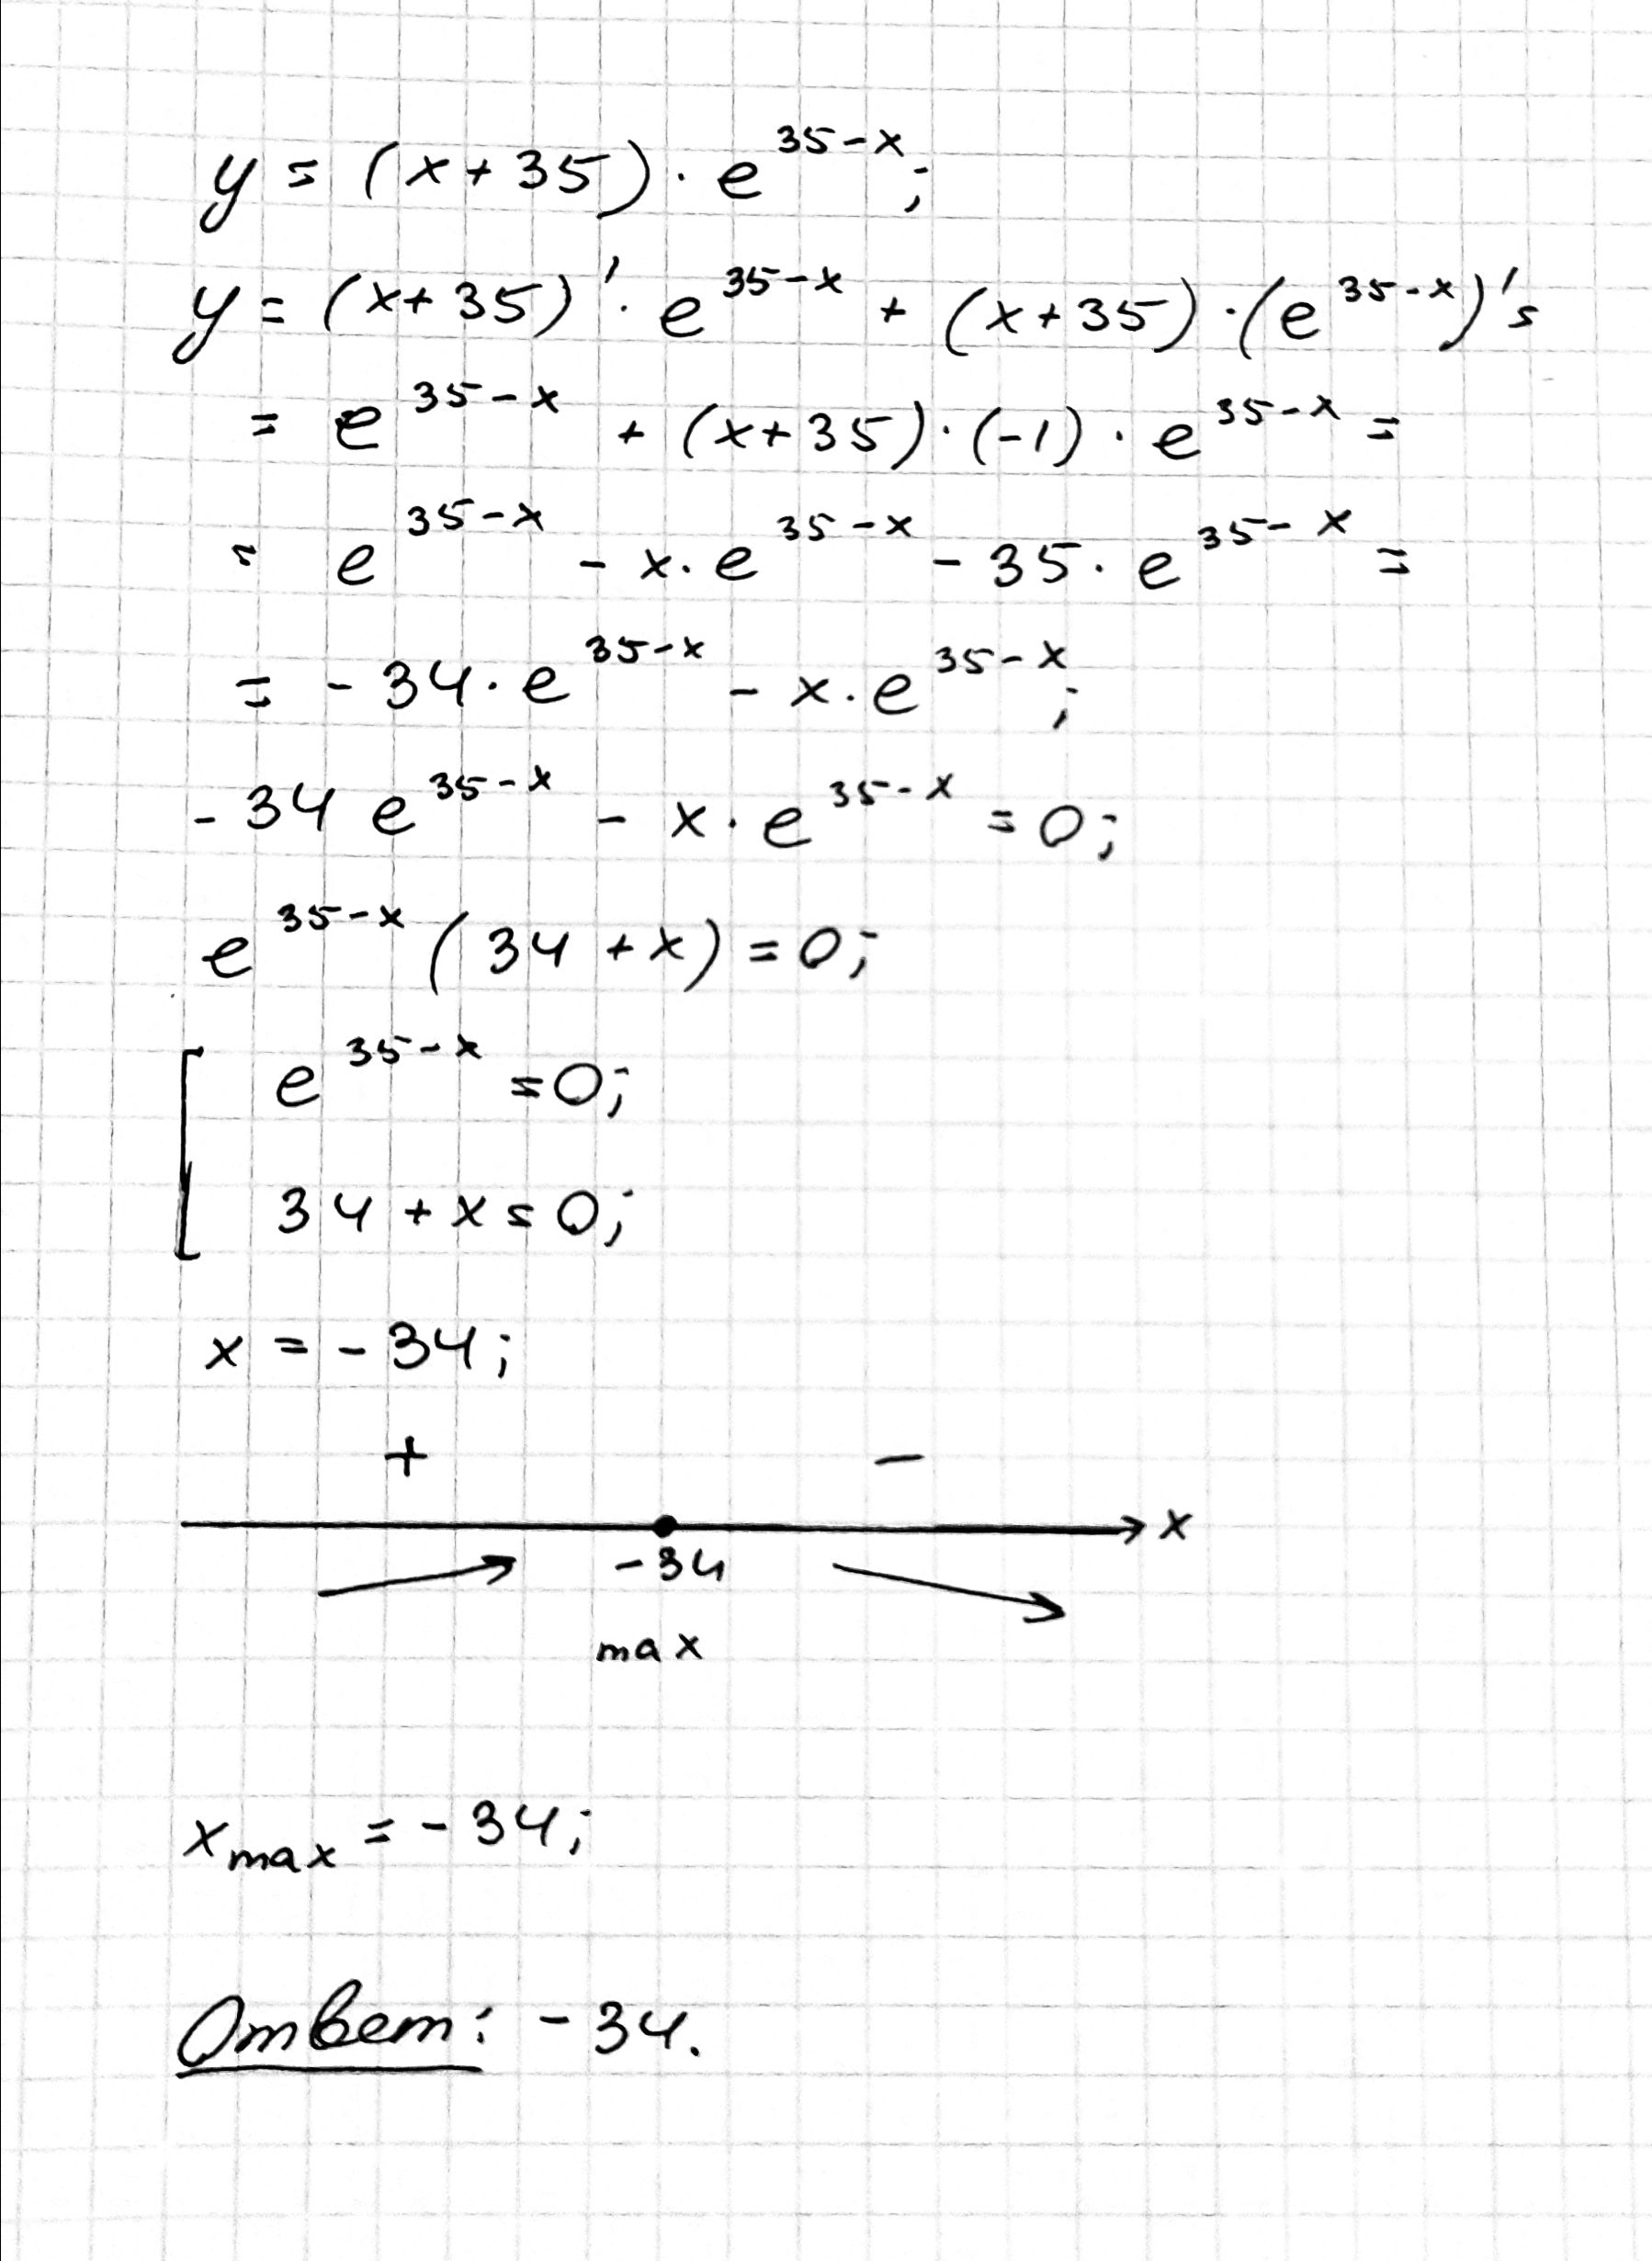 y = (x+35) · e^{35-x};
y = (x+35)' · e^{35-x} + (x+35) · (e^{35-x})' =
= e^{35-x} + (x+35) · (-1) · e^{35-x} =
= e^{35-x} - x · e^{35-x} - 35 · e^{35-x} =
= -34 · e^{35-x} - x · e^{35-x};
-34 e^{35-x} - x · e^{35-x} = 0;
e^{35-x} (34 + x) = 0;
[ e^{35-x} = 0;
34 + x = 0;
x = -34;
+ −
-34 x
max
x_{max} = -34;
Ответ: -34.